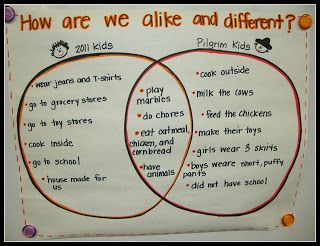 How are we alike and different?
2011 Kids
• wear jeans and T-shirts
• go to grocery stores
• go to toy stores
• cook inside
• go to school
• house made for
us
• play
marbles
• do chores
• eat oatmeal,
chicken, and
cornbread
• have
animals
Pilgrim Kids
• cook outside
• milk the cows
• feed the chickens
• make their toys
• girls wear 3 skirts
• boys weare short, puffy
pants
• did not have school